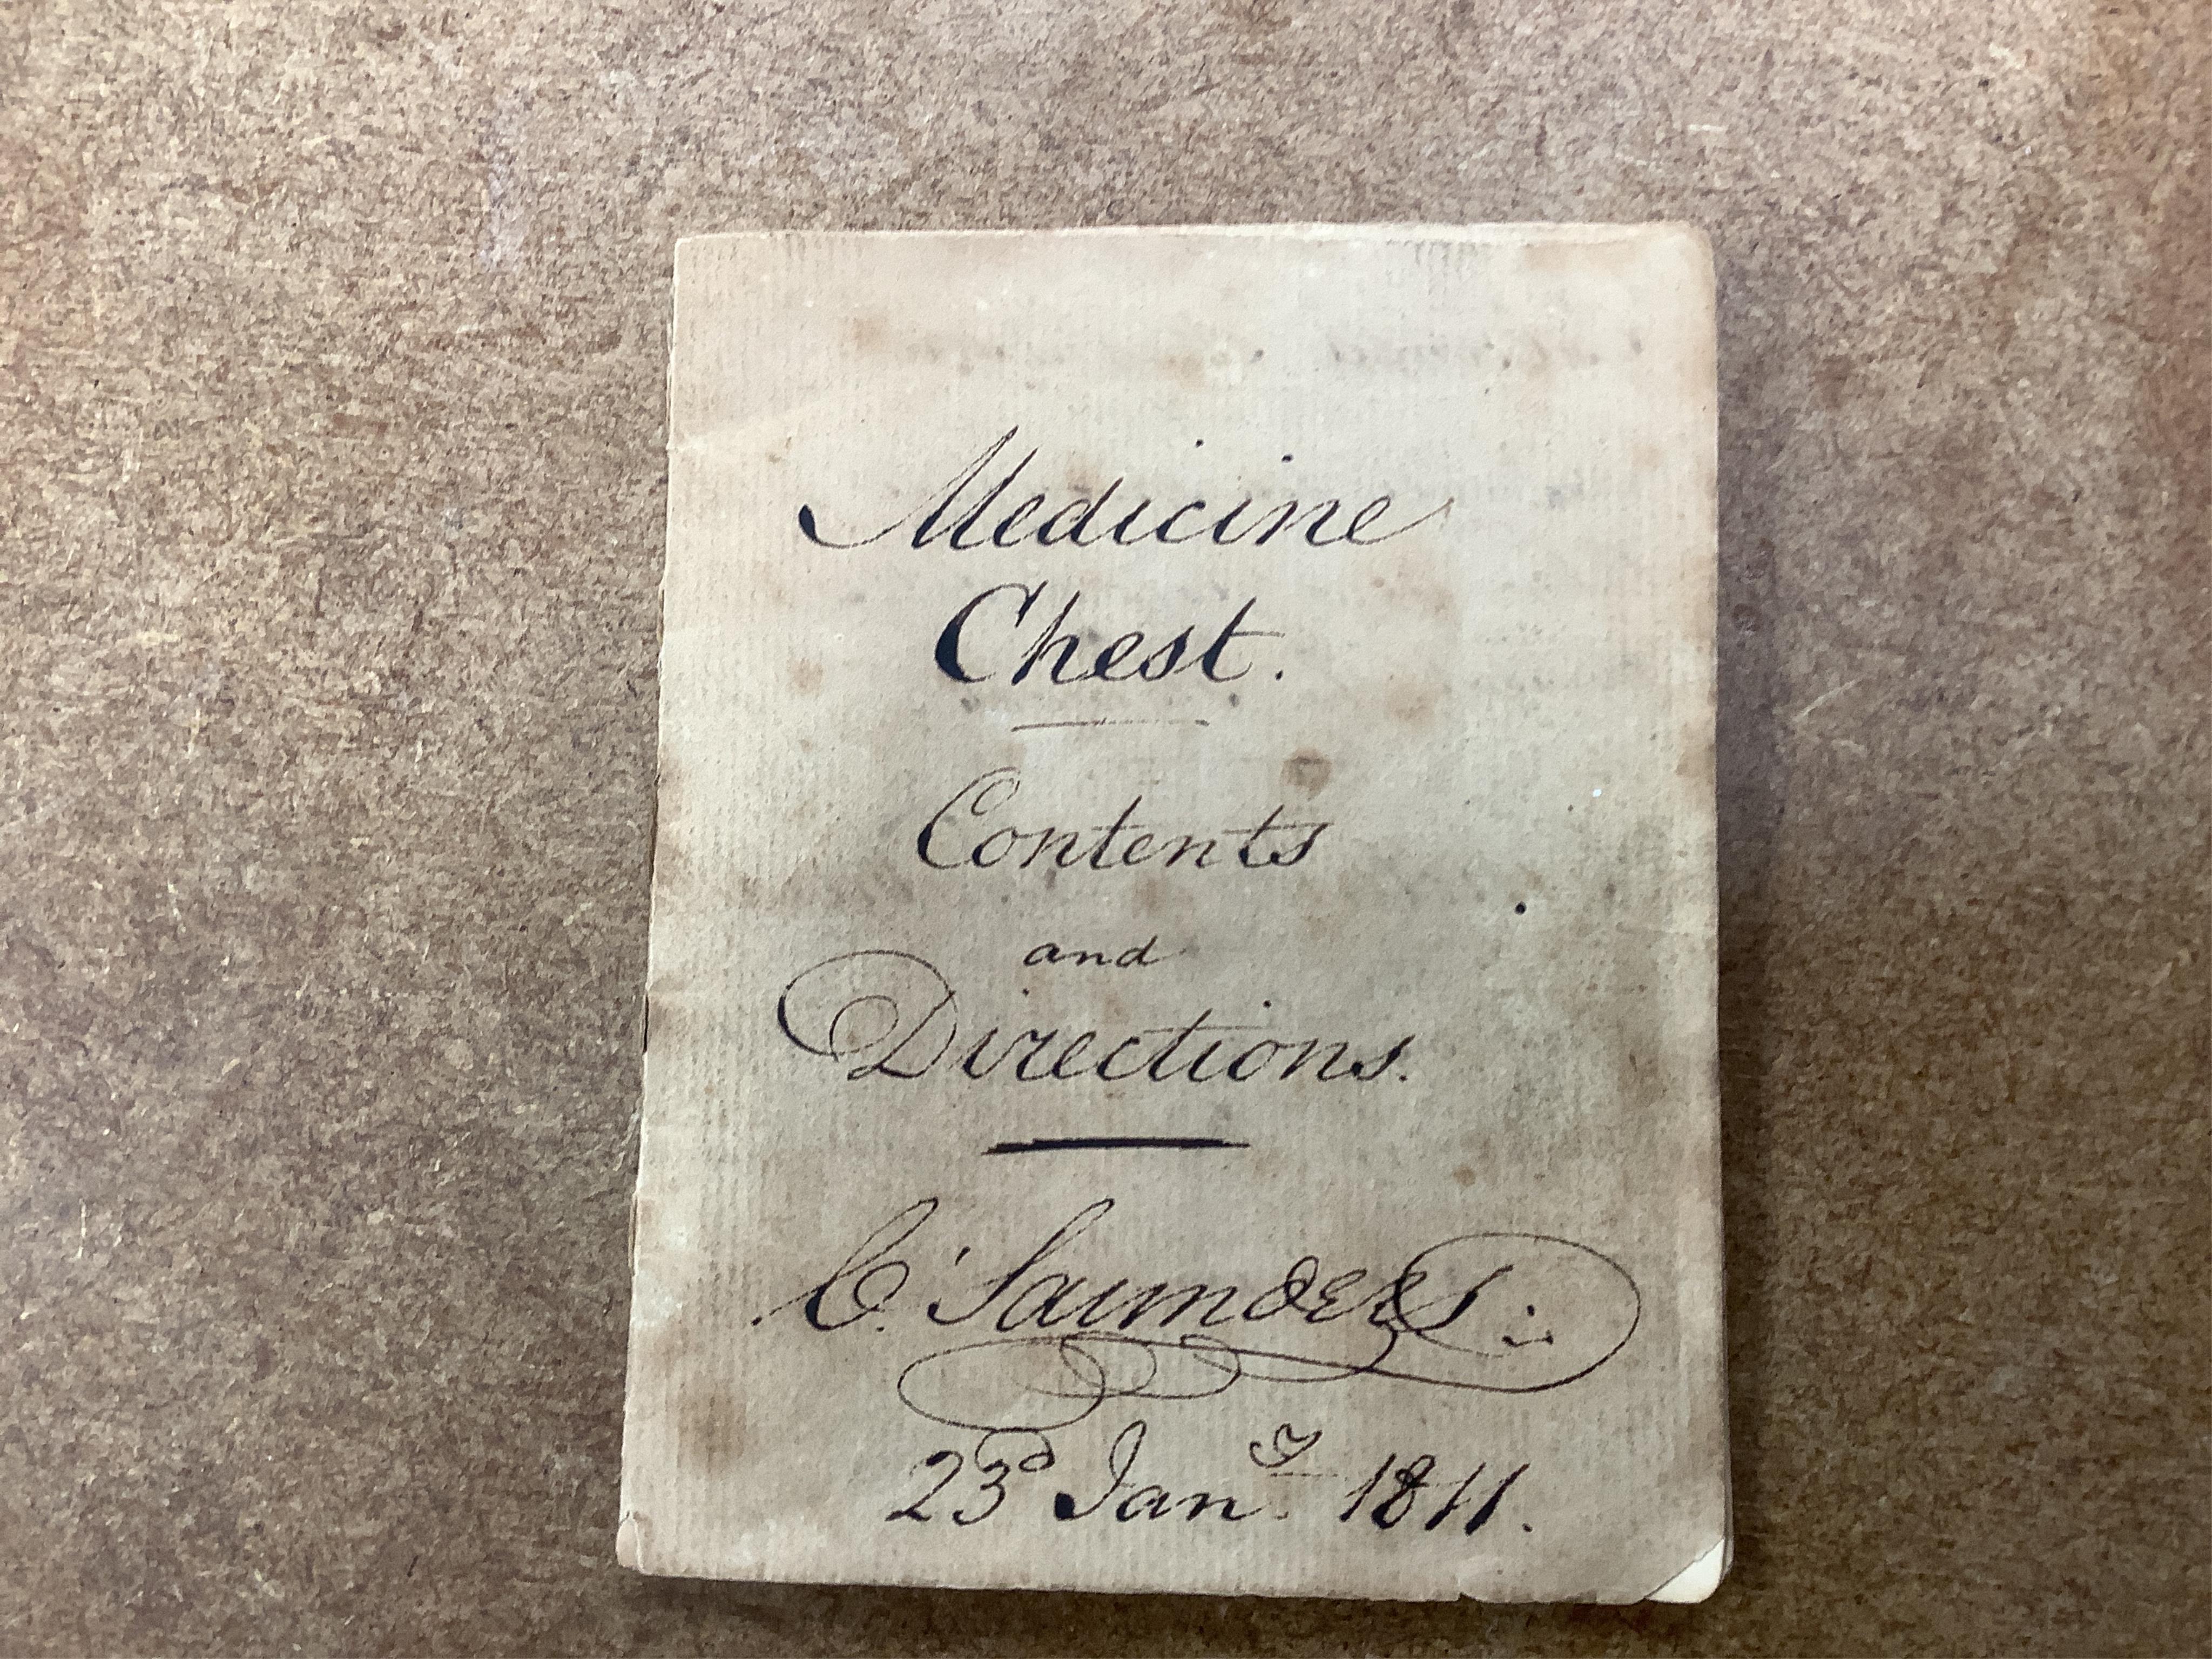 Medicine
Chest.
Contents
and
Directions.
C. Saunders.
23d Jany. 1811.